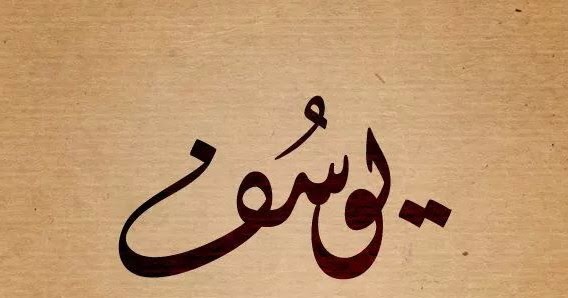 يوسُف